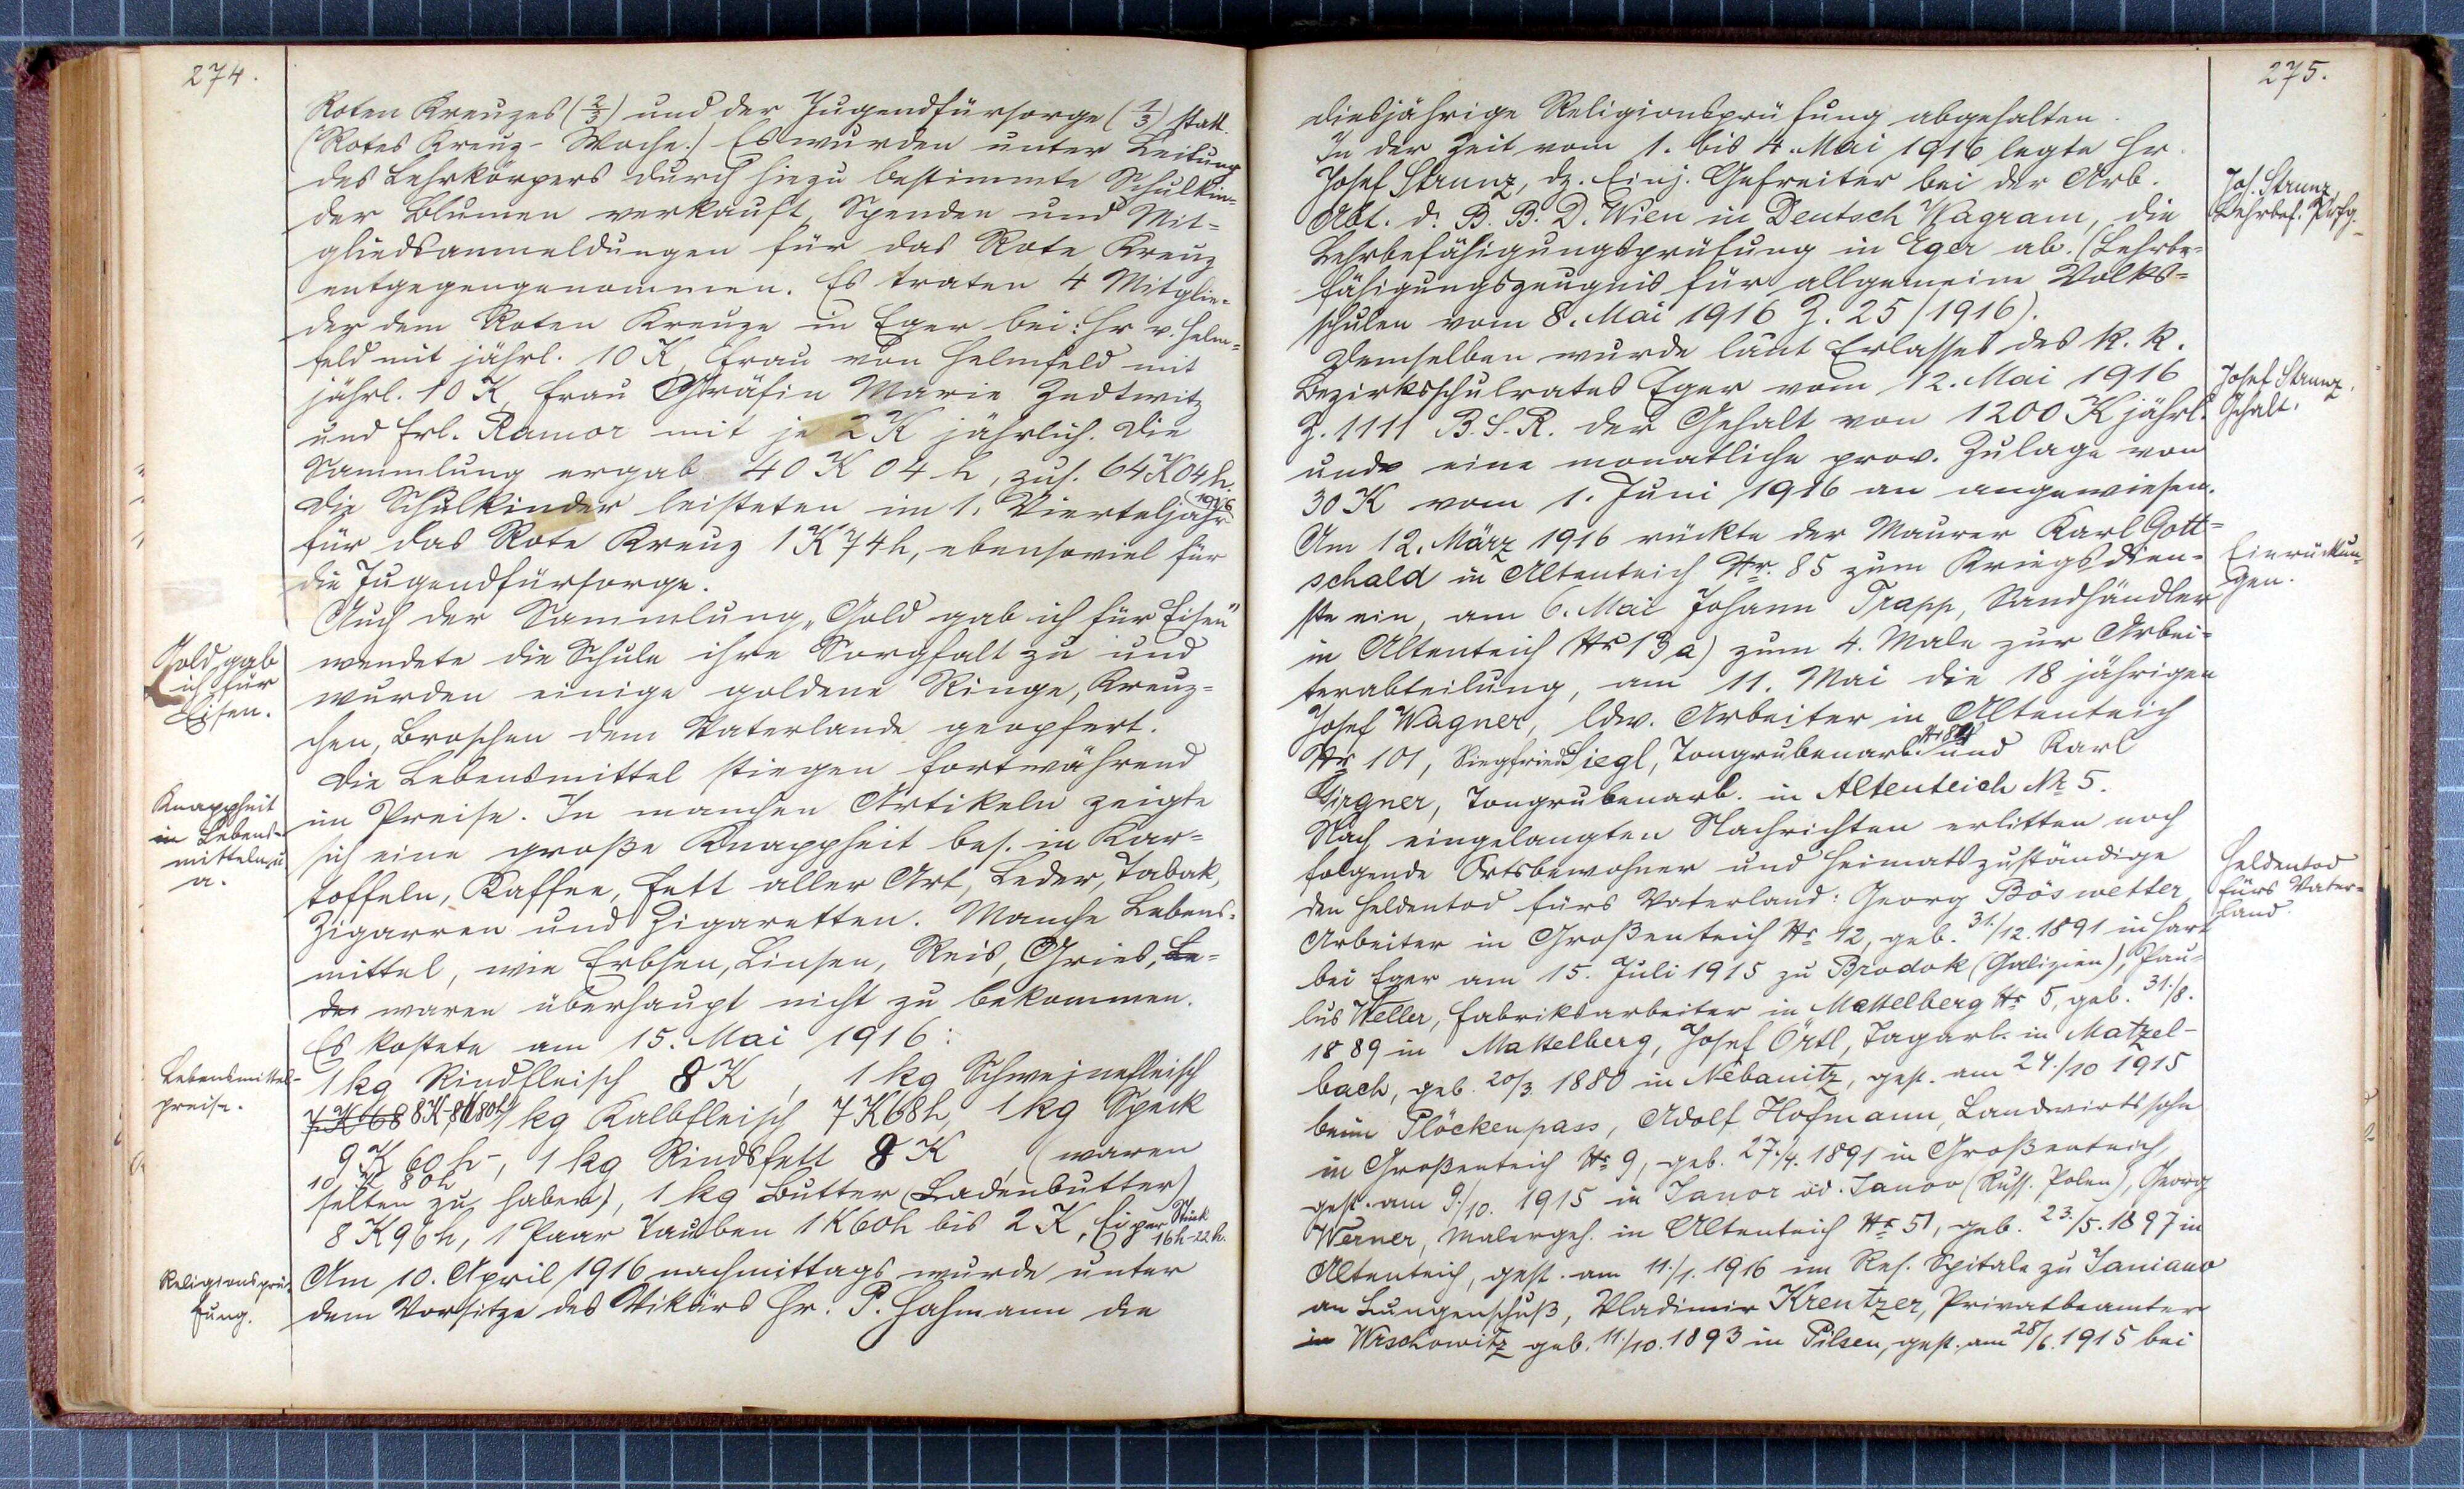 274.
Roten Kreuzes (2/3) und der Jugendfürsorge (1/3) statt.
(Rotes Kreuz-Woche.) Es wurden unter Leitung
des Lehrkörpers durch hiezu bestimmte Schulkin-
der Blumen verkauft, Spenden und Mit-
gliedsanmeldungen für das Rote Kreuz
entgegengenommen. Es traten 4 Mitglie-
der dem Roten Kreuze in Eger bei: Hr v. Helm-
feld mit jährl. 10 K, Frau von Helmfeld mit
jährl. 10 K, Frau Gräfin Marie Zedtwitz
und Frl. Ramor mit je 2 K jährlich. Die
Sammlung ergab 40 K 04 h, zus. 64 K 04 h.
Die Schulkinder leisteten im 1. Vierteljahr 1916
für das Rote Kreuz 1 K 74 h, ebensoviel für
die Jugendfürsorge.
Auch der Sammlung „Gold gab ich für Eisen"
Gold gab
ich für
Eisen.
wendete die Schule ihre Sorgfalt zu und
wurden einige goldene Ringe, Kreuz-
chen, Broschen dem Vaterlande geopfert.
Die Lebensmittel stiegen fortwährend
Knappheit
in Lebens-
mitteln u
a.
im Preise. In manchen Artikeln zeigte
sich eine große Knappheit bes. in Kar-
toffeln, Kaffee, Fett aller Art, Leder, Tabak,
Zigarren und Zigaretten. Manche Lebens-
mittel, wie Erbsen, Linsen, Reis, Gries, Le-
der waren überhaupt nicht zu bekommen.
Es kostete am 15. Mai 1916:
Lebensmittel-
preise.
1 kg Rindfleisch 8 K, 1 kg Schweinefleisch
7 K 68 8 K-8 K 80 h 1 kg Kalbfleisch 7 K 68 h, 1 kg Speck
9 K 60 h-, 1 kg Rindsfett 8 K, (waren
10 K 80 h
selten zu haben), 1 kg Butter (Ladenbutter)
8 K 96 h, 1 Paar Tauben 1 K 60 h bis 2 K, Ei per Stück
16 h-22 h.
Religionsprü-
fung.
Am 10. April 1916 nachmittags wurde unter
dem Vorsitze des Vikärs Hr. P. Hahmann die
275.
diesjährige Religionsprüfung abgehalten.
In der Zeit vom 1. bis 4. Mai 1916 legte Hr.
Josef Strunz, dz. Einj. Gefreiter bei der Arb.
Jos. Strunz,
Lehrbef. Prfg.
Abt. d. B. B. D. Wien in Deutsch Wagram, die
Lehrbefähigungsprüfung in Eger ab. (Lehrbe-
fähigungszeugnis für allgemeine Volks-
schulen vom 8. Mai 1916 Z. 25/1916).
Demselben wurde laut Erlasses des k. k.
Bezirksschulrates Eger vom 12. Mai 1916
Josef Strunz.
Gehalt.
Z. 1111 B. S. R. der Gehalt von 1200 K jährl.
und eine monatliche prov. Zulage von
30 K vom 1. Juni 1916 an angewiesen.
Am 12. März 1916 rückte der Maurer Karl Gott-
Einrückun-
gen.
schald in Altenteich Nr. 85 zum Kriegsdien-
ste ein, am 6. Mai Johann Trapp, Sandhändler
in Altenteich Nr 13 a) zum 4. Male zur Arbei-
terabteilung, am 11. Mai die 18 jährigen
Josef Wagner, ldw. Arbeiter in Altenteich
Nr 101, Siegfried Siegl, Tongrubenarb. Nr 84 und Karl
Girgner, Tongrubenarb. in Altenteich Nr 5.
Nach eingelangten Nachrichten erlitten noch
folgende Ortsbewohner und Heimatszuständige
Heldentod
fürs Vater-
land.
den Heldentod fürs Vaterland: Georg Böswetter,
Arbeiter in Großenteich Nr 12, geb. 31./12. 1891 in Hart
bei Eger am 15. Juli 1915 zu Brodok (Galizien), Pau-
lus Weller, Fabriksarbeiter in Mattelberg Nr 5, geb. 31./8.
1889 in Mattelberg, Josef Örtl, Tagarb. in Matzel-
bach, geb. 20/3. 1880 in Nebanitz, gest. am 24./10 1915
beim Plöckenpass, Adolf Hofmann, Landwirtssohn
in Großenteich Nr 9, geb. 27./4. 1891 in Großenteich,
gest. am 9./10. 1915 in Janor od. Janov (Russ. Polen), Georg
Werner, Malergeh. in Altenteich Nr 51, geb. 23./5. 1897 in
Altenteich, gest. am 11./1. 1916 im Res. Spitale zu Janiano
an Lungenschuß, Vladimir Kreutzer, Privatbeamter
in Wrschowitz geb. 11./10. 1893 in Pilsen, gest. am 28/6. 1915 bei